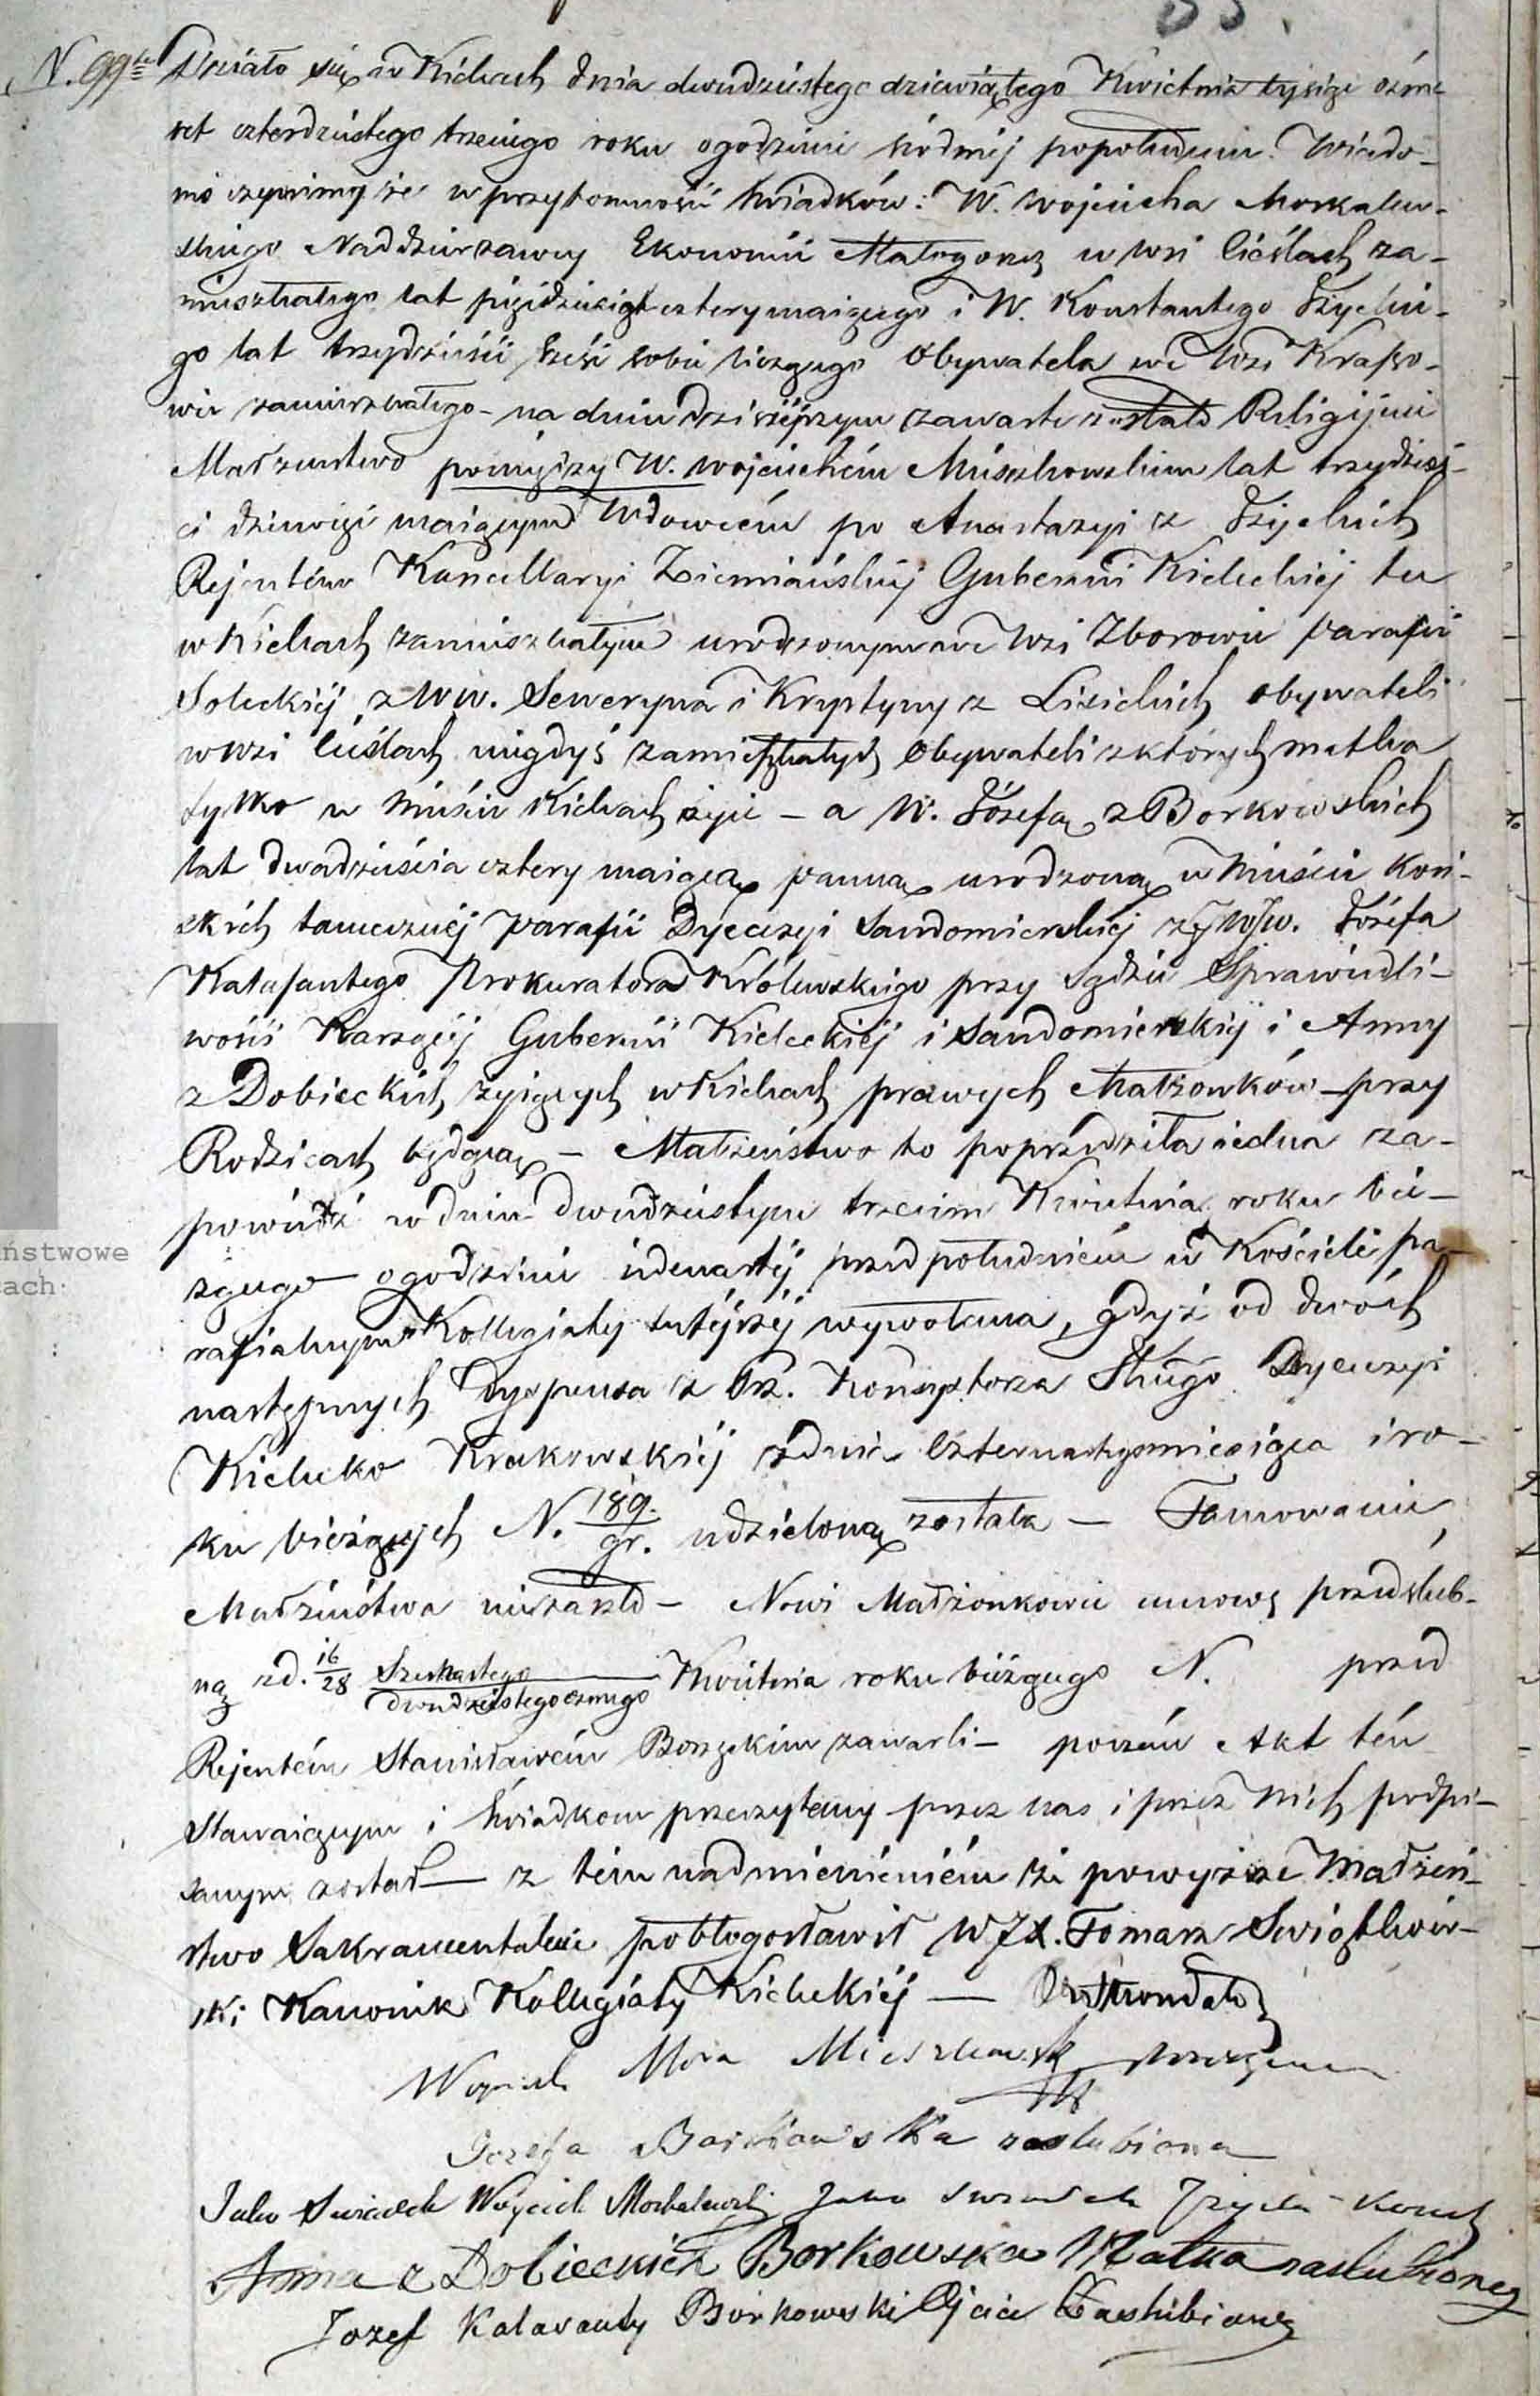 55.
N. 99te Działo się w Kielcach dnia dwudziestego dziewiątego Kwietnia tysiąc óśmset
czterdziestego trzeciego roku ogodzinie siódméj popołudniu. Wiado-
mo czynimy że w przytomności świadków: W. Wojciecha Morkalew-
skiego Naddzierzawcy Ekonomii Małogoszcz w wsi Cieślach za-
mieszkałego lat pięćdziesiąt cztery maiącego i W. Konstantego
go lat trzydzieści sześć sobie liczącego Obywatela we Wsi Krasso-
wie zamieszkałego – na dniu dzisiéjszym zawarte zostało Religijne
Małżeństwo pomiędzy W. Wojciechém Mieszkowskim lat trzydzieś-
ci dziewięć maiącym Wdowcém po Anastazyi z
Rejentém Kancellaryi Ziemiańskiéj Gubernii Kieleckiéj tu
w Kielcach zamieszkałym urodzonym we Wsi Zborowie parafii
Soleckiéj z WW. Seweryna i Krystyny z Lisickich obywateli
w wsi Cieślach niegdyś zamieszkałych Obywateli z których matka
tylko w Mieście Kielcach żyie – a W. Józefą z Borkowskich
lat dwadzieścia cztery maiącą panną urodzoną w Mieście Koń-
skich tamecznéj parafii Dyecezyi Sandomierskiéj z WW. Józefa
Kalasantego Prokuratora Królewskiego przy Sądzie Sprawiedli-
wości Karzącéj Gubernii Kieleckiéj i Sandomierskiéj i Anny
z Dobieckich żyiących w Kielcach prawych Małżonków – przy
Rodzicach będącą – Małżeństwo to poprzedziła iedna za-
powiedź w dniu dwudziestym trzecim Kwietnia roku bie-
żącego ogodzinie iedenastéj przed południém w Kościele pa-
rafialnym Kollegiaty tutéjszéj wywołana, gdyż od dwóch
następnych Dyspensa z Prz. Konsystorza Dyecezyi
Kielecko Krakowskiéj zdnia Czternastego miesiąca i ro-
ku bieżących N. 189/gr. udzieloną została – Tamowanie
Małżeństwa niezaszło – Nowi Małżonkowie umowę przedślub-
ną zd. 16/28 Szesnastego/dwudziestego osmego Kwietnia roku bieżącego N. przed
Rejentém Stanisławém zawarli – poczém Akt tén
Stawaiącym i świadkom przeczytany przez nas i przez Nich podpi-
sanym został – z tém nadmieniéniém że powyższe Małżeń-
stwo Sakramentalnie pobłogosławił WJX. Tomasz
ski Kanonik Kollegiaty Kieleckiéj –
Wojciech Mora Mieszkowski
Jozefa Borkowska zaślubiona
Jako Swiadek Woyciech Morkalewski Jako Swiadek
Anna z Dobieckich Borkowska Matka zaslubioney
Jozef Kalasanty Borkowski Ojciec Zaślubioney
aństwowe
cach